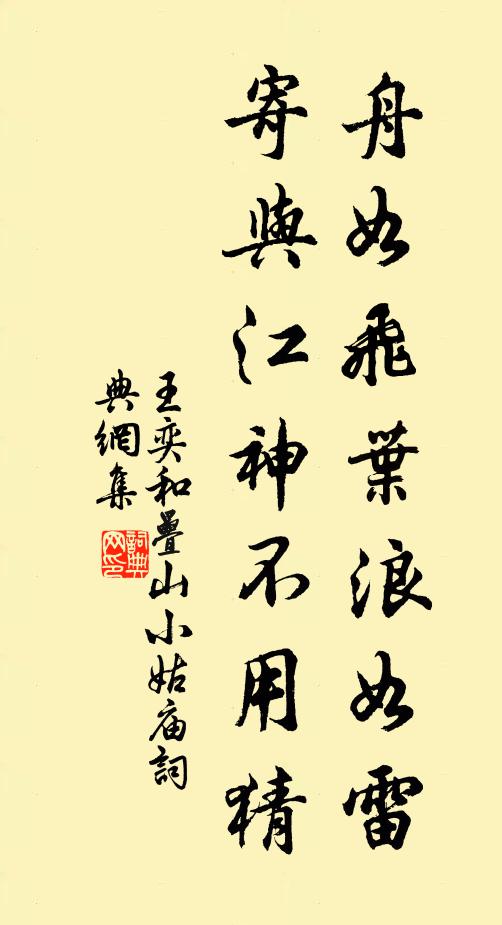 舟如飛葉浪如雷
寄與江神不用猜
王奕和疊山小姑庙詞
典網集
詞典
网印